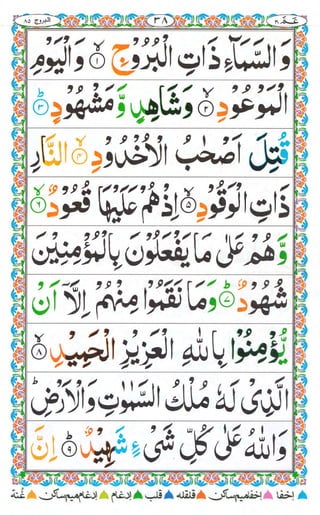 عمّ ٣٠ ٣٨ البروج ٨٥
وَالسَّمَآءِ ذَاتِ الْبُرُوْجِ ۙ﴿۱﴾ وَالْيَوْمِ
الْمَوْعُوْدِ ۙ﴿۲﴾ وَشَاهِدٍ وَّ مَشْهُوْدٍ ؕ﴿۳﴾
قُتِلَ اَصْحٰبُ الْاُخْدُوْدِ ۙ﴿۴﴾ النَّارِ
ذَاتِ الْوَقُوْدِ ۙ﴿۵﴾ اِذْ هُمْ عَلَيْهَا قُعُوْدٌ ۙ﴿۶﴾
وَّ هُمْ عَلٰى مَا يَفْعَلُوْنَ بِالْمُؤْمِنِيْنَ
شُهُوْدٌ ؕ﴿۷﴾ وَمَا نَقَمُوْا مِنْهُمْ اِلَّآ اَنْ
يُّؤْمِنُوْا بِاللّٰهِ الْعَزِيْزِ الْحَمِيْدِ ۙ﴿۸﴾
الَّذِىْ لَهٗ مُلْكُ السَّمٰوٰتِ وَالْاَرْضِ ؕ
وَاللّٰهُ عَلٰى كُلِّ شَىْءٍ شَهِيْدٌ ؕ﴿۹﴾ اِنَّ
اخفا اخفا میم ساکن قلقلہ قلب ادغام ادغام میم ساکن غنہ